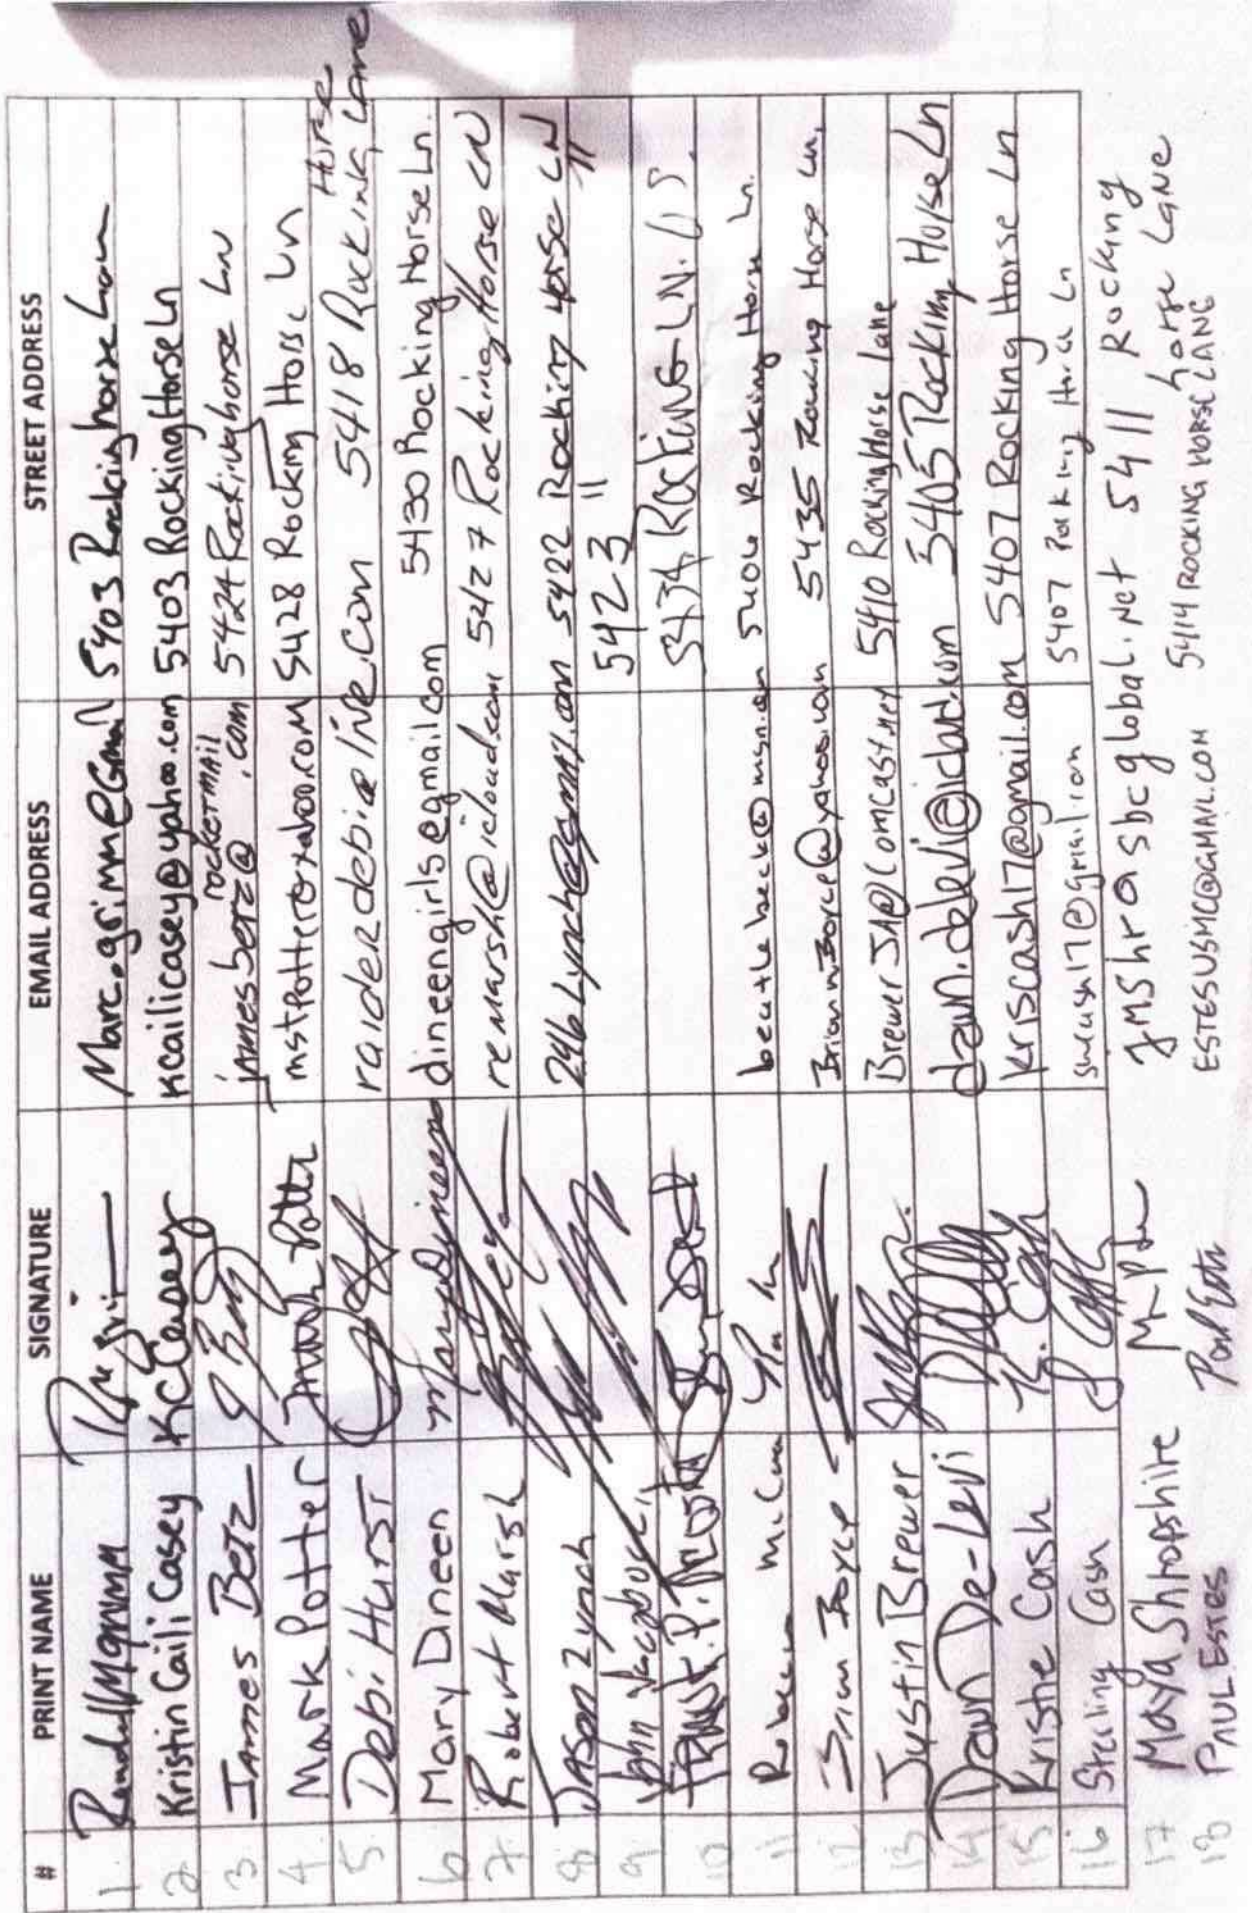 # PRINT NAME SIGNATURE EMAIL ADDRESS STREET ADDRESS
1 Marc.grimm@Gmail 5403 Rockinghorse
2 Kristin Caili Casey KC Casey kcailicasey@yahoo.com 5403 Rocking Horse Ln
3 James Betz jamesbetz@rocketmail.com 5424 Rockinghorse LN
4 Mark Potter Mark Potter 5428 Rocking Horse Ln
5 Debi Hurst raiderdebi@live.com 5418 Rocking Horse Lane
6 Mary Dineen Mary Dineen dineengirls@gmail.com 5430 Rocking Horse Ln.
7 Robert Marsh remarsh@icloud.com 5427 Rocking Horse LN
8 Jason Lynch 246Lynch@gmail.com 5422 Rocking Horse LN
9 John 5423 " "
10 5434 Rocking LN.
11 Rocking Horse Ln.
12 Brian Boyce BrianNBoyce@yahoo.com 5435 Rocking Horse Ln.
13 Justin Brewer BrewerJA@Comcast.net 5410 Rocking Horse Lane
14 Dawn De-Levi dawn.delevi@icloud.com 5405 Rocking Horse Ln
15 Kristie Cash K. Cash kriscash17@gmail.com 5407 Rocking Horse Ln
16 Sterling Cash S Cash 5407 Rocking Horse Ln
17 Maya Shropshire JMShro@sbcglobal.net 5411 Rocking horse Lane
18 Paul Estes Paul Estes ESTESUSMC@GMAIL.COM 5414 ROCKING HORSE LANE